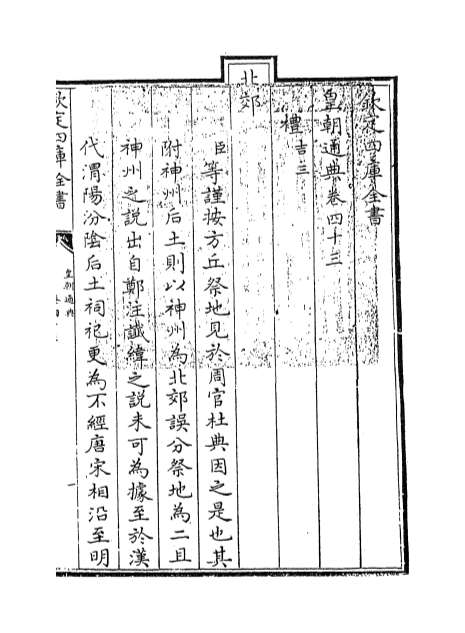 北郊
欽定四庫全書
皇朝通典卷四十三
禮吉三
北郊
臣等謹按方丘祭地見於周官杜典因之是也其
附神州后土則以神州為北郊誤分祭地為二且
神州之說出自鄭注讖緯之說未可為據至於漢
代渭陽汾陰后土祠祀更為不經唐宋相沿至明
欽定四庫全書
皇朝通典
一